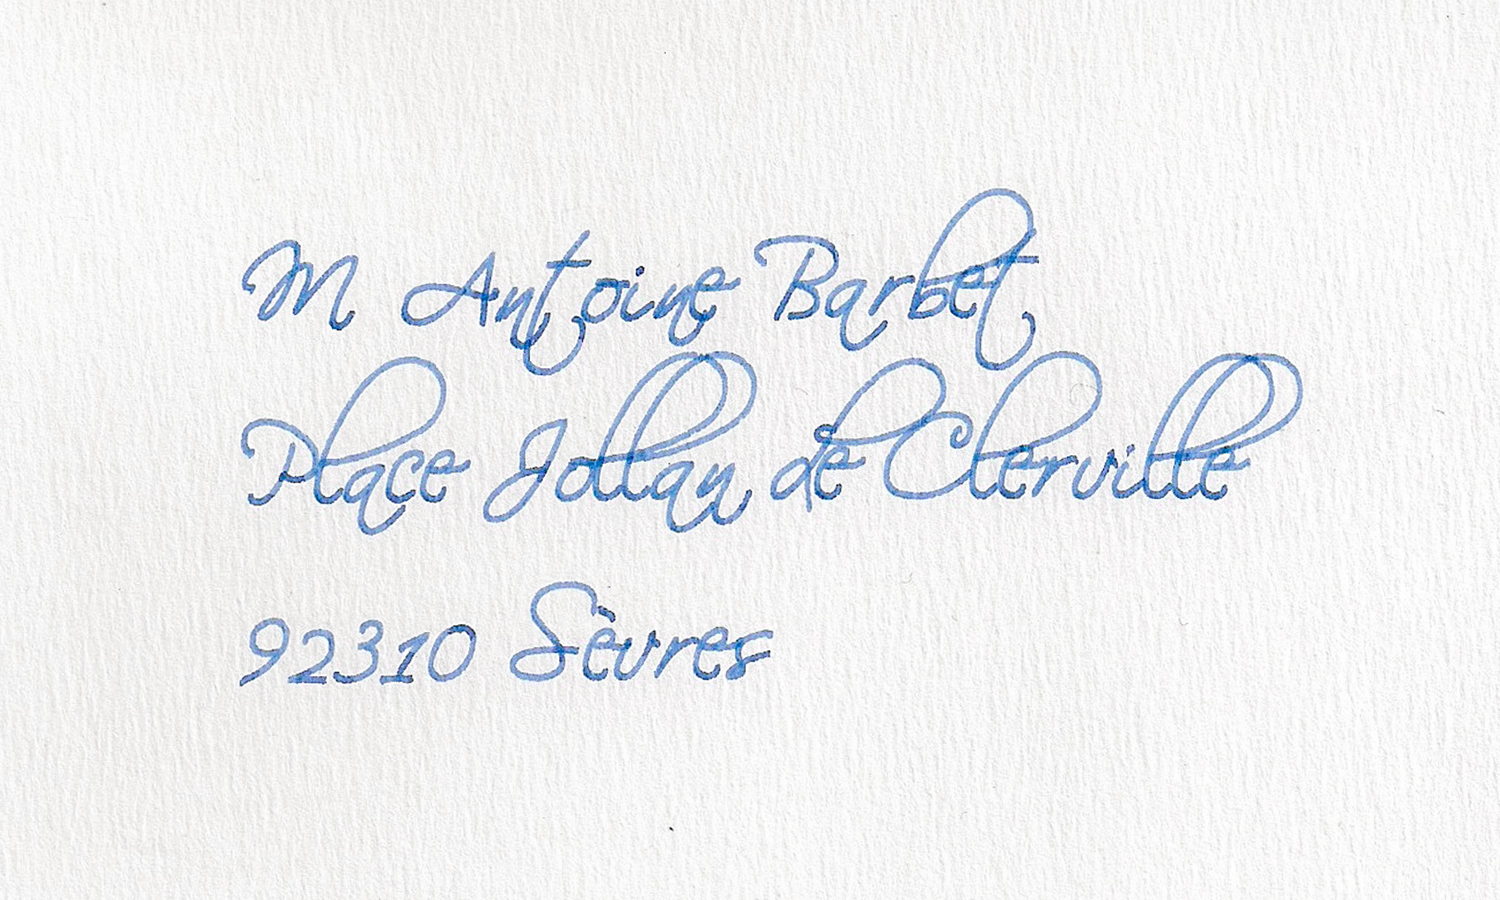 M Antoine Barbet
Place Jollan de Clerville
92310 Sèvres